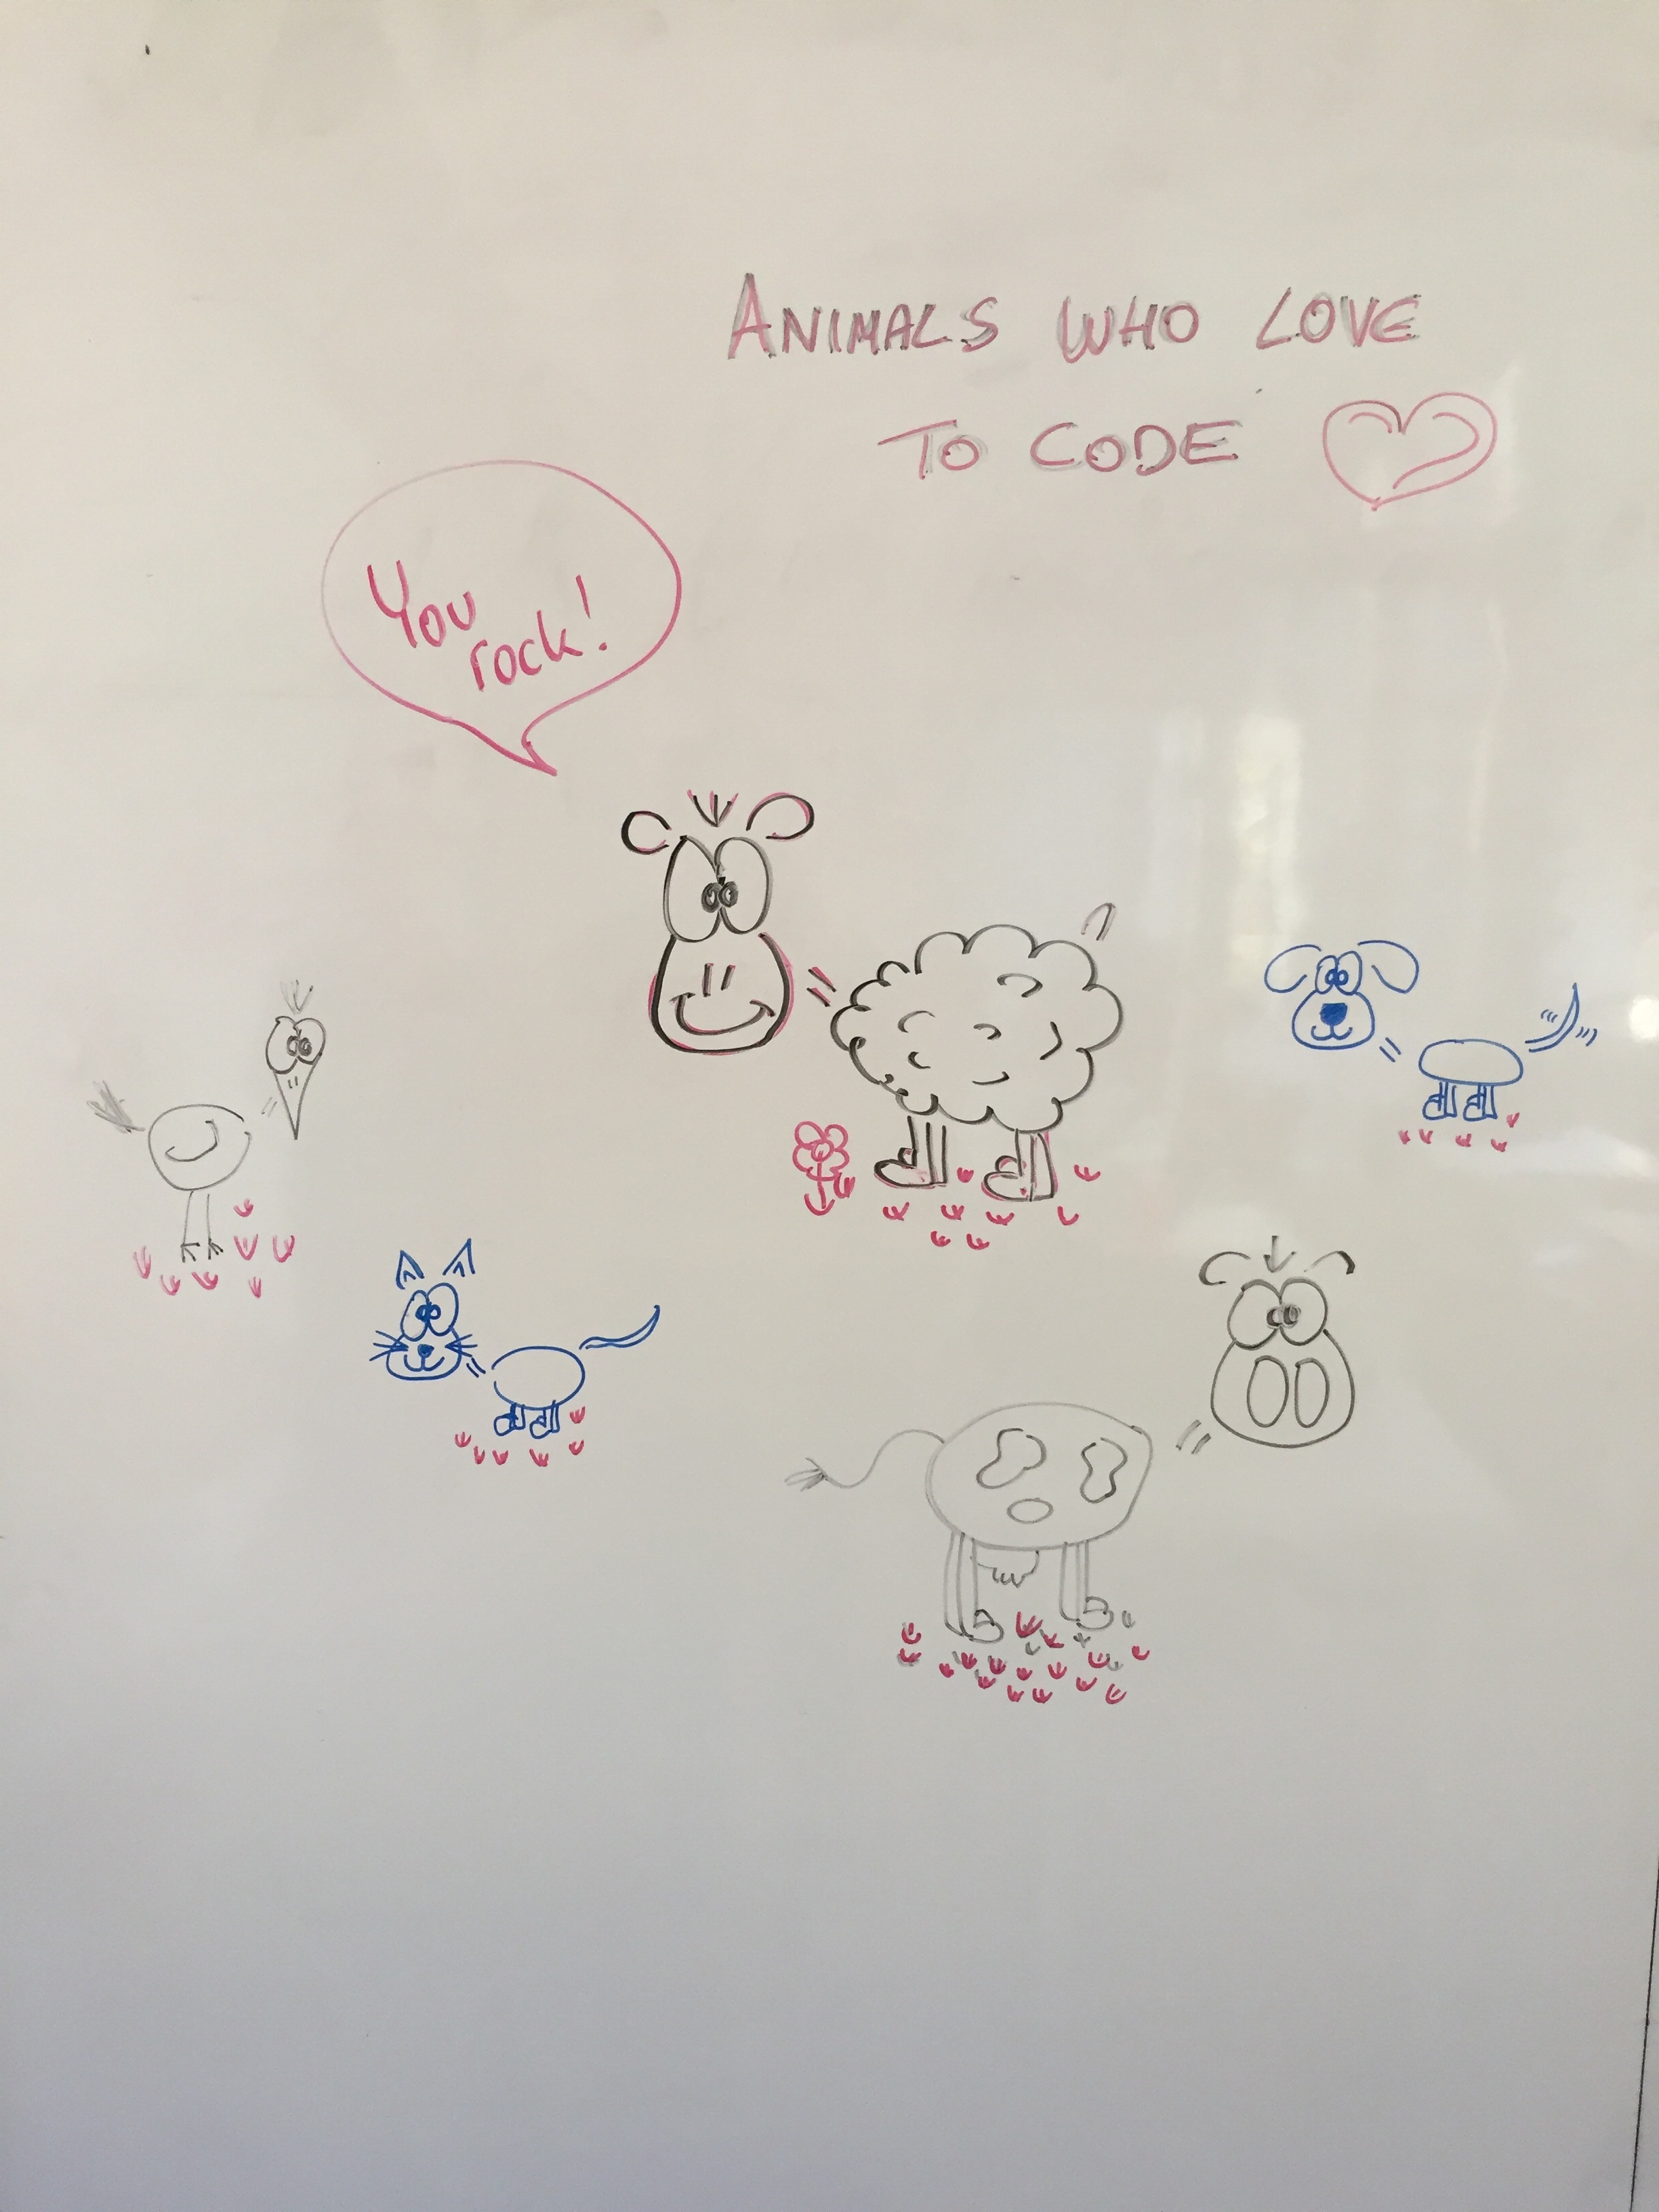 ANIMALS WHO LOVE
TO CODE
You
rock!